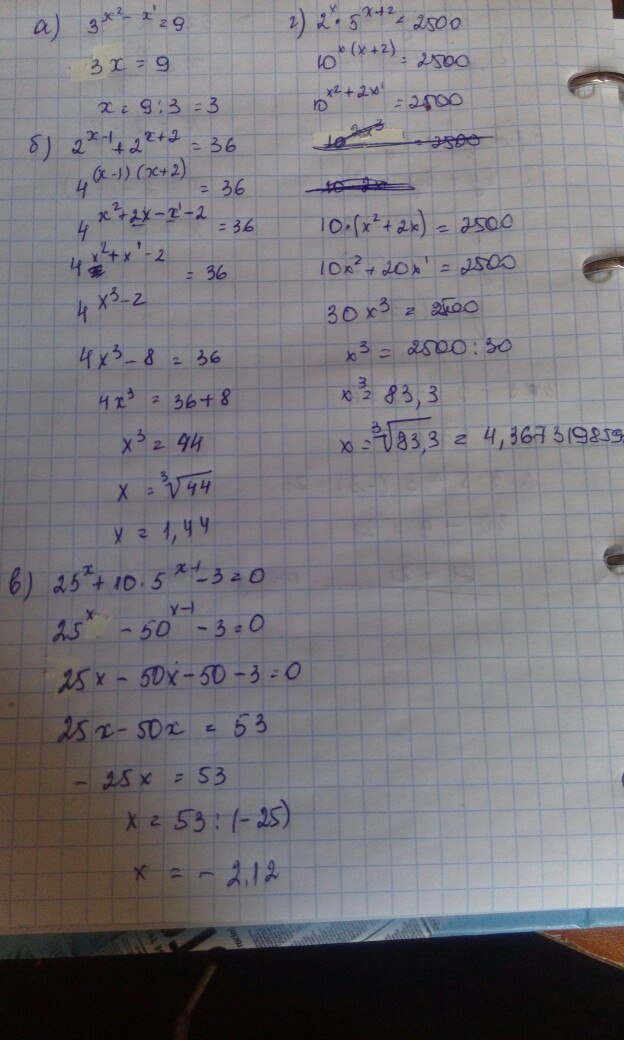 а) 3^{x²-x¹}=9
3x = 9
x = 9:3 = 3
б) 2^{x-1}+2^{x+2} = 36
4^{(x-1)(x+2)} = 36
4^{x²+2x-x¹-2} = 36
4^{x²+x¹-2} = 36
4^{x³-2}
4x³-8 = 36
4x³ = 36+8
x³ = 44
x = ³√44
x = 1,44
в) 25^x+10·5^{x-1}-3=0
25^x -50^{x-1}-3=0
25x-50x-50-3=0
25x-50x = 53
-25x = 53
x = 53:(-25)
x = -2,12
г) 2^x·5^{x+2}=2500
10^{x(x+2)} = 2500
10^{x²+2x¹} = 2500
= 2500
10·(x²+2x) = 2500
10x²+20x¹ = 2500
30x³ = 2500
x³ = 2500:30
x³= 83,3
x=³√83,3 = 4,367319859